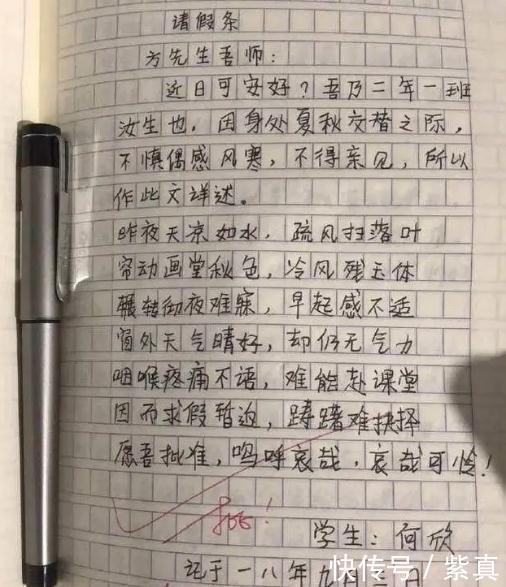 请假条
方先生吾师：
近日可安好？吾乃二年一班
汝生也，因身处夏秋交替之际，
不慎偶感风寒，不得亲见，所以
作此文详述。
昨夜天凉如水，疏风扫落叶
帘动画堂秋色，冷风残玉体
辗转彻夜难寐，早起感不适
窗外天气晴好，却仍无气力
咽喉疼痛不语，难能赴课堂
因而求假暂返，踌躇难抉择
愿吾批准，呜呼哀哉，哀哉可怜！
批！
学生：何欣
记于一八年九月
快传号／紫真